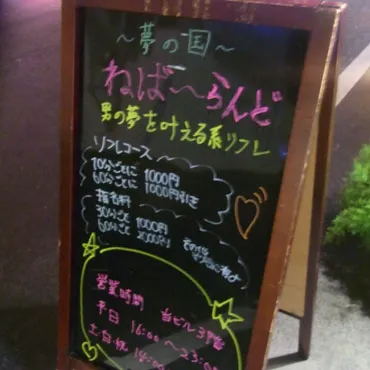 ～夢の国～
ねば～らんど
男の夢を叶える系リフレ
リフレコース～
10分ごとに 1000円
60分ごとに 1000円引き
指名料
30分ごと 1000円
60分ごと 2000円
その他
営業時間 当ビル3階
平日 16:00～23:0
土日祝 14:00